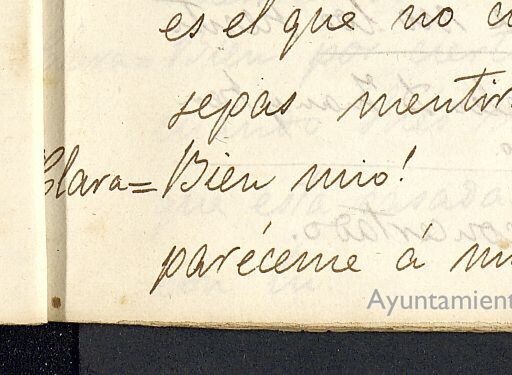 es el que no
sepas mentir
Clara = Bien mio!
paréceme á
Ayuntamient